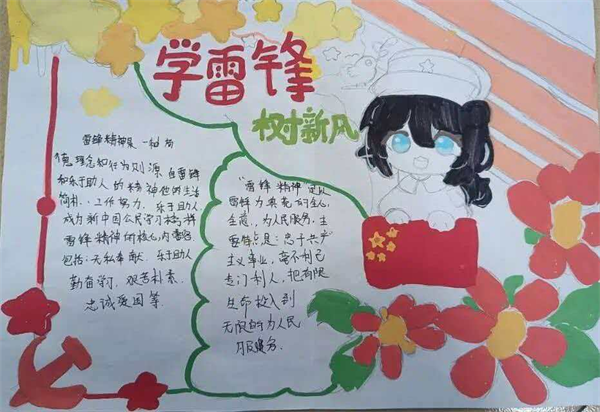 学雷锋
树新风
雷锋精神是一种为
德理念和行为则源自雷锋
和乐于助人的精神他的生活
简朴、工作努力、乐于助人
成为新中国公民学习榜样
雷锋精神的核心内容
包括:无私奉献、乐于助人
勤奋学习、艰苦朴素、
忠诚爱国等.
"雷锋精神"是以
雷锋为典范的全心
全意、为人民服务.主
要特点是:忠于共产
主义事业,毫不利己
专门利人,把有限
生命投入到
无限的为人民
服务.